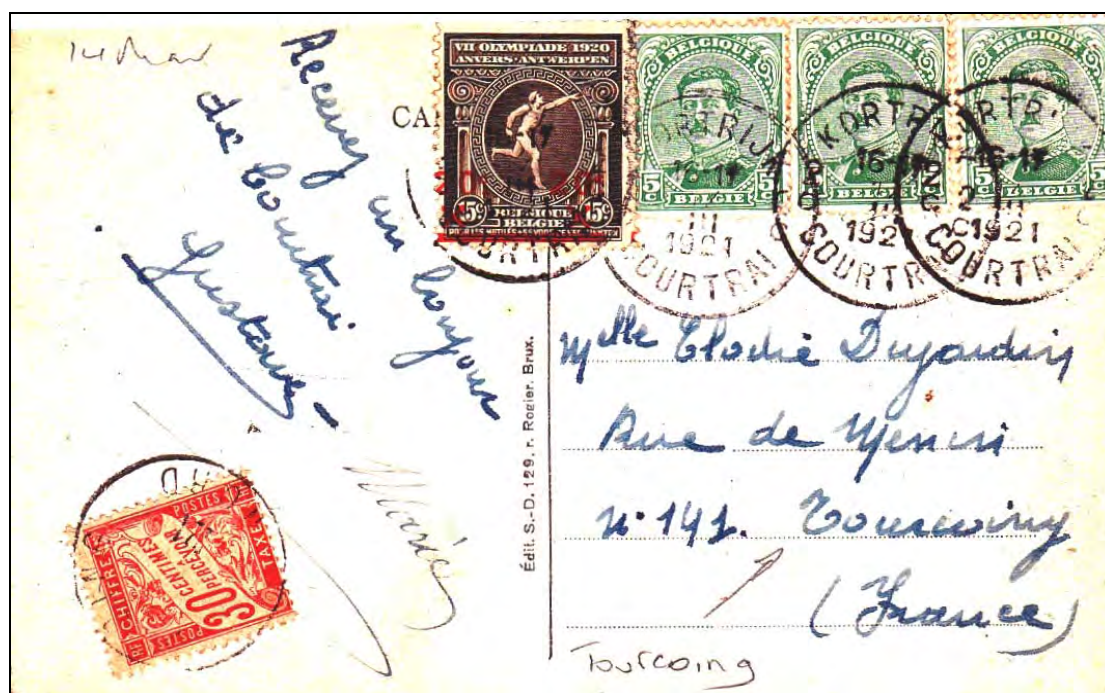 14 Mar
Recevez un bonjour
de Courtrai
Gustave
Marie
CA
VII OLYMPIADE 1920
ANVERS-ANTWERPEN
15c BELGIQUE 15c
BELGIË
BELGIQUE
5c BELGIË 5c
BELGIQUE
5c BELGIË 5c
BELGIQUE
5c BELGIË 5c
KORTRIJK
16-17
III
1921
COURTRAI
KORTRIJK
16-17
III
1921
COURTRAI
KORTRI
16-17
2
III
1921
COURTRAI
Édit. S.-D. 129, r. Rogier. Brux.
Mlle Elodie Dujardin
Rue de Menin
n° 141. Tourcoing
(France)
Tourcoing
RF CHIFFRE TAXE RF
POSTES
30
CENTIMES
A PERCEVOIR
POSTES